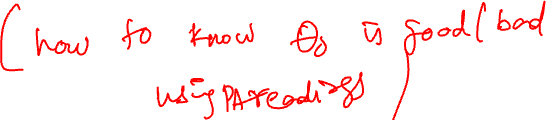 (how to know θ₀ is good/bad
using PA readings